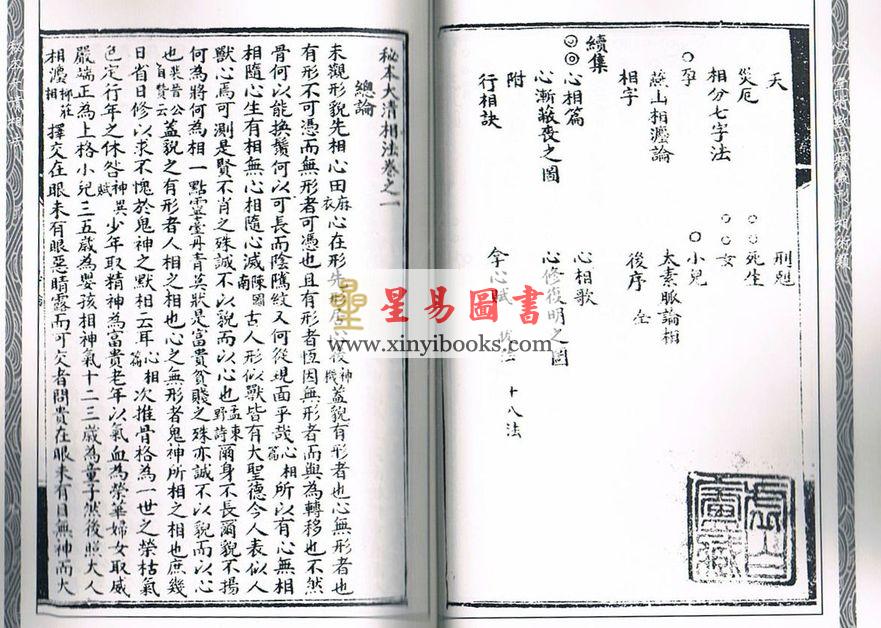 天 刑剋
災厄 ○○死生
相分七字法 ○○女
○孕 ○小兒
燕山相瀍論 太素脈論相
相字 後序
續集
◎◎心相篇 心相歌
心漸蔽喪之圖 心修復明之圖
附
行相訣 心賦 十八法
秘本大清相法卷之一
總論
未觀形貌先相心田麻衣心在形先形居心後神機蓋貌有形者也心無形者也
有形不可憑而無形者可憑也且有形者恆因無形者而與為轉移也不然
骨何以能換鬚何以可長而陰隲紋又何從現面乎哉心相篇所以有心無相
相隨心生有相無心相隨心滅陳圖南古人形似獸皆有大聖德今人表似人
獸心焉可測是賢不肖之殊誠不以貌而以心也孟東野詩爾身不長爾貌不揚
何為將何為相一點靈臺丹青莫狀是富貴貧賤之殊亦誠不以貌而以心
也裴晉公自贊云蓋貌之有形者人相之相也心之無形者鬼神所相之相也庶幾
日省日修以求不愧於鬼神之默相云耳心相篇次推骨格為一世之榮枯氣
色定行年之休咎神異賦少年取精神為富貴老年以氣血為榮華婦女取威
嚴端正為上格小兒三五歲為嬰孩相神氣十二三歲為童子然後照大人
相瀍相柳莊擇交在眼未有眼惡睛露而可交者問貴在眼未有目無神而大
星易圖書
www.xinyibooks.com